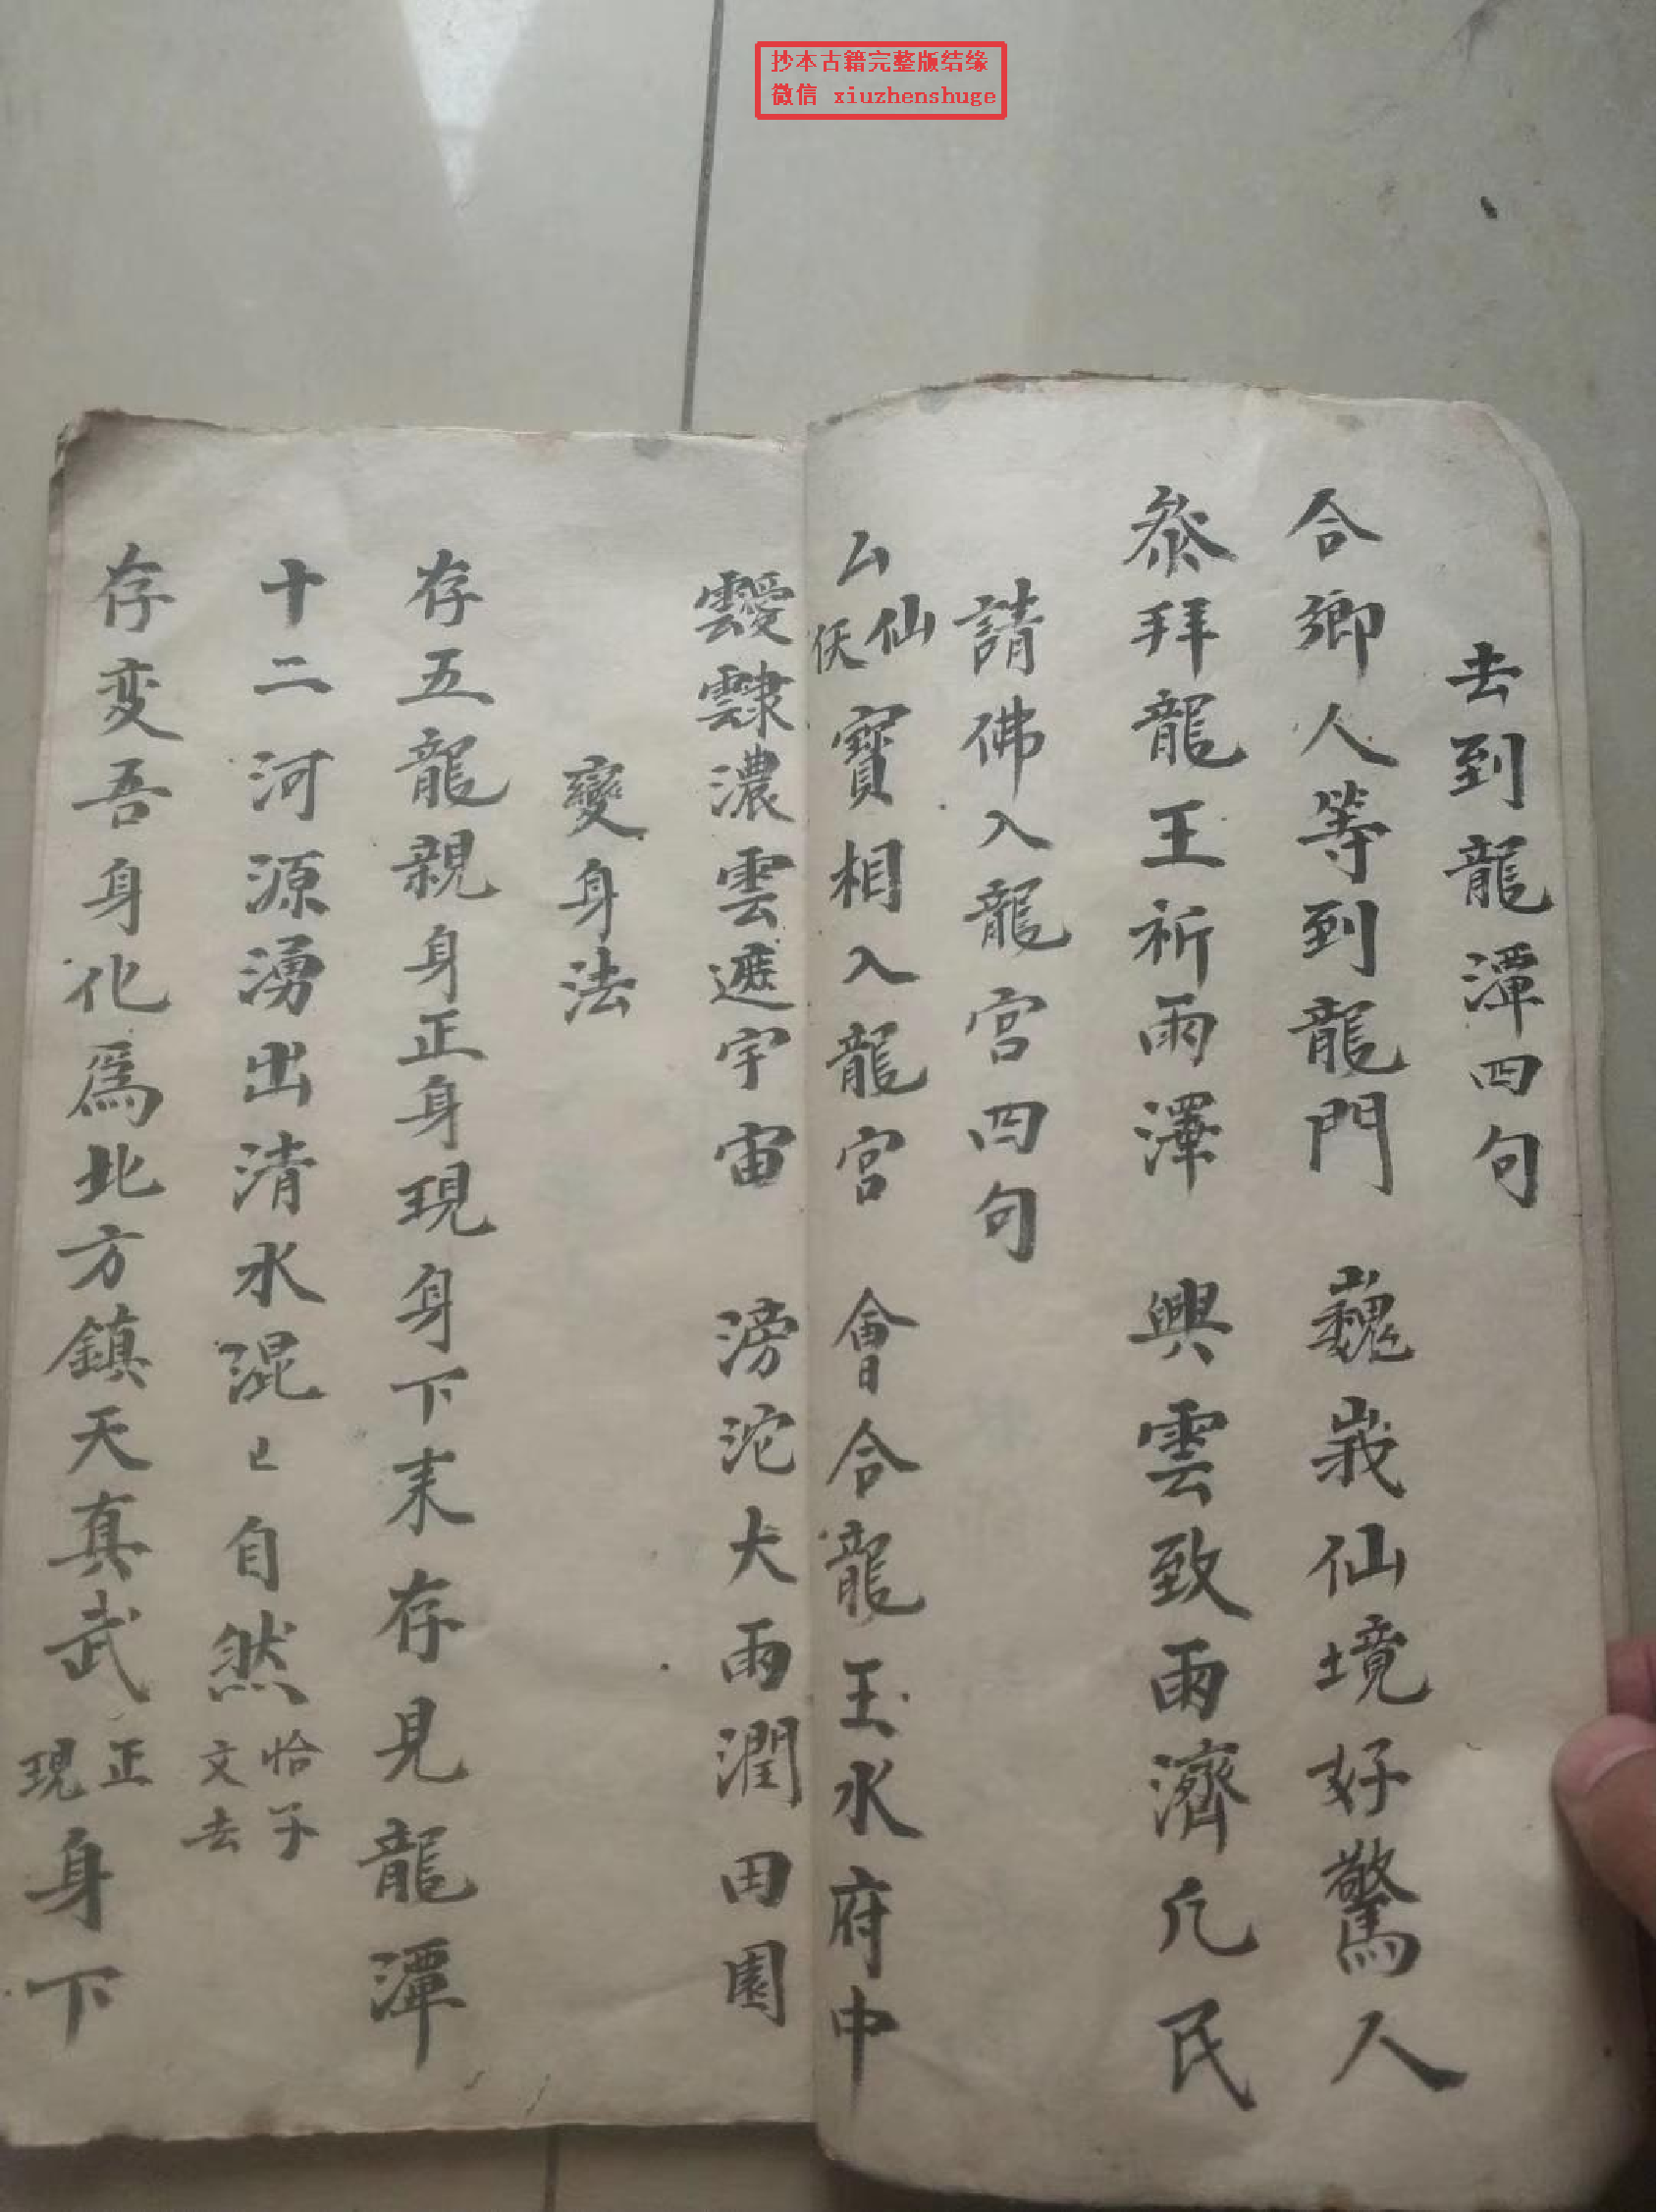 抄本古籍完整版结缘
微信 xiuzhenshuge
去到龍潭四句
合鄉人等到龍門 巍峩仙境好驚人
叅拜龍王祈雨澤 興雲致雨濟凢民
請佛入龍宮四句
仙
寶相入龍宮 會合龍王水府中
靉靆濃雲遮宇宙 滂沱大雨潤田園
變身法
存五龍親身正身現身下末存見龍潭
十二河源湧出清水混匕自然恰子文去
存变吾身化爲北方鎮天真武正現身下